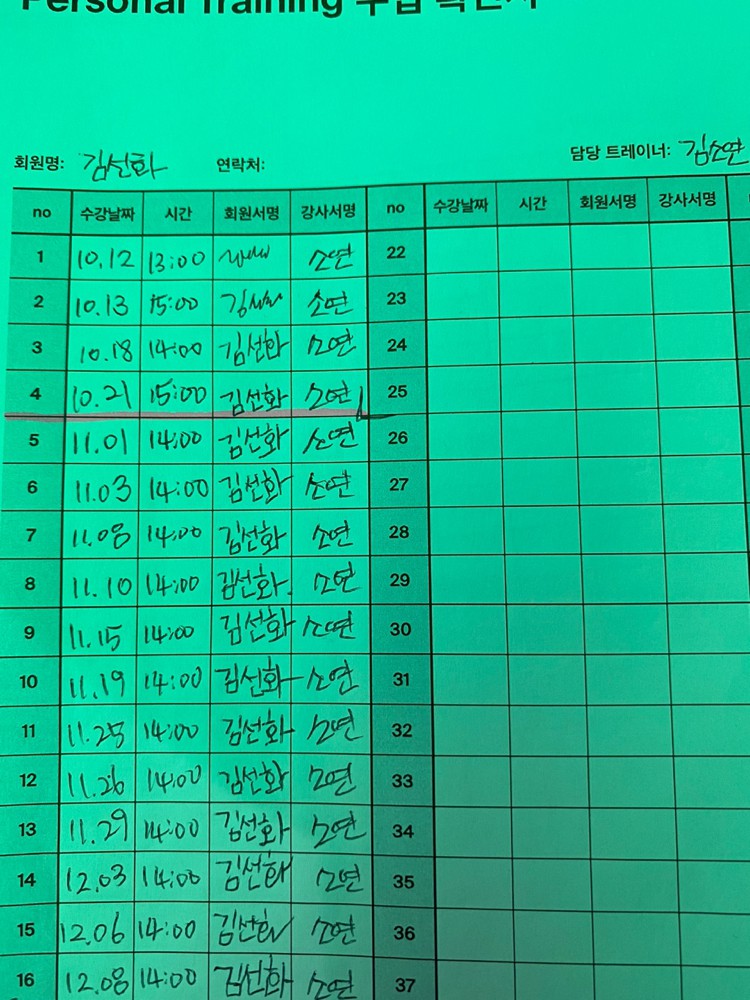 Personal Training 수업 확인서
회원명: 김선화 연락처: 담당 트레이너: 김소연
no 수강날짜 시간 회원서명 강사서명 no 수강날짜 시간 회원서명 강사서명
1 10.12 13:00 소연 22
2 10.13 15:00 소연 23
3 10.18 14:00 김선화 소연 24
4 10.21 15:00 김선화 소연 25
5 11.01 14:00 김선화 소연 26
6 11.03 14:00 김선화 소연 27
7 11.08 14:00 김선화 소연 28
8 11.10 14:00 김선화 소연 29
9 11.15 14:00 김선화 소연 30
10 11.19 14:00 김선화 소연 31
11 11.25 14:00 김선화 소연 32
12 11.26 14:00 김선화 소연 33
13 11.29 14:00 김선화 소연 34
14 12.03 14:00 김선화 소연 35
15 12.06 14:00 김선화 소연 36
16 12.08 14:00 김선화 소연 37